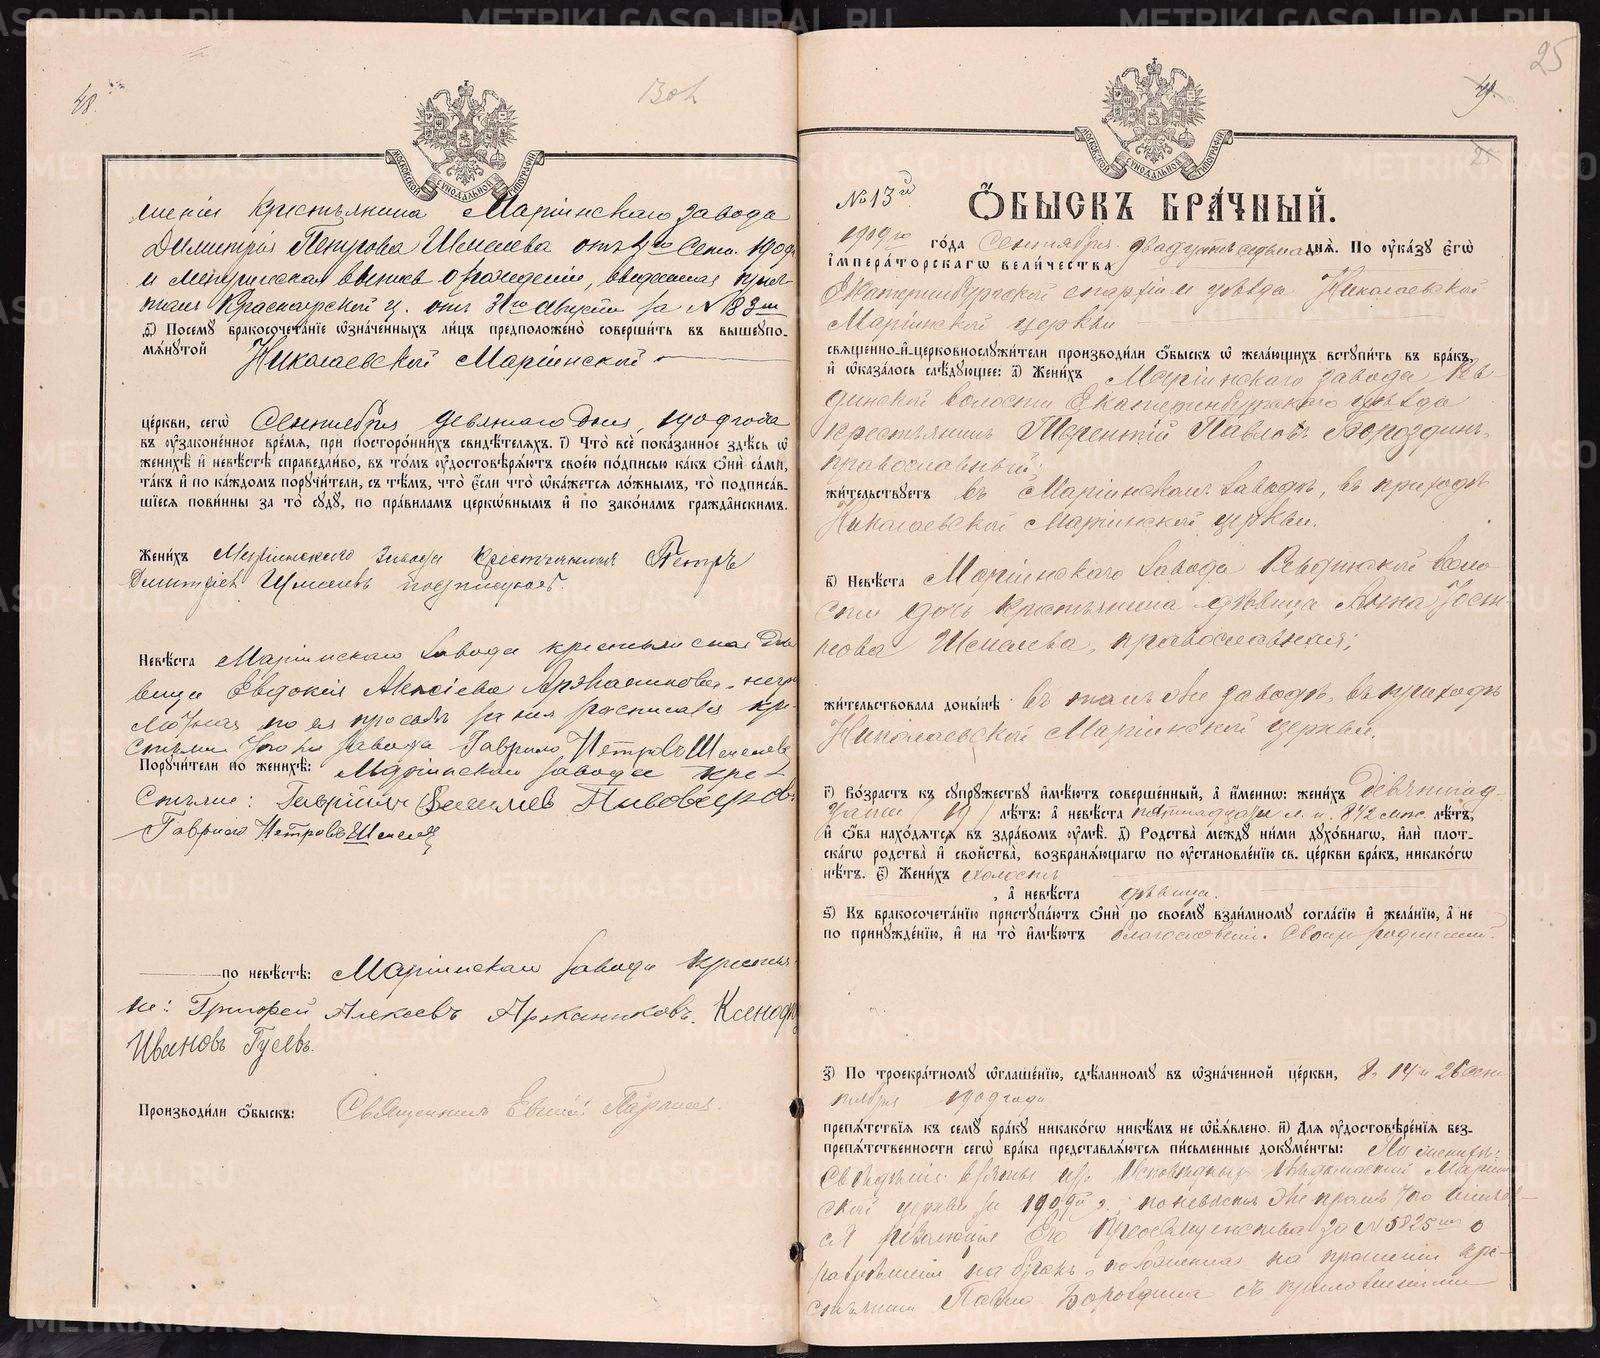 48.
Зоб.
МОСКОВСКОЙ СѴНОДАЛЬНОЙ ТИПОГРАФІИ
шеніи крестьянина Маріинскаго завода
Димитрія Петрова Шмелева отъ Сент. 1909
и метрическая выпись о рожденіи, выданная
Красноярской ц. отъ 31го Августа за № 183
д҃) Посемꙋ бракосочета́нїе ѡ҆зна́ченныхъ ли́цъ предположено̀ соверши́ть въ вышеꙋпо-
мѧ́нꙋтой Николаевской Маріинской
це́ркви, сегѡ̀ Сентября девятаго дня, 1909 года
въ ᲂу҆зако́ненное вре́мѧ, при посторо́ннихъ свидѣ́телѧхъ. і҃) Что̀ всѐ пока́занное здѣ́сь ѡ҆
женихѣ̀ и҆ невѣ́стѣ справедли́во, въ то́мъ ᲂу҆достовѣрѧ́ютъ свое́ю по́дписью ка́къ ѻ҆нѝ са́ми,
та́къ и҆ по ка́ждомъ порꙋчи́тели, съ тѣ́мъ, что̀ є҆сли что̀ ѡ҆ка́жетсѧ ло́жнымъ, то̀ подписа́в-
шїесѧ пови́нны за то̀ сꙋдꙋ̀, по пра́виламъ церко́внымъ и҆ по зако́намъ гражда́нскимъ.
Жени́хъ Маріинскаго завода крестьянинъ Петръ
Дмитріев Шмелевъ
Невѣ́ста Маріинскаго завода крестьянская дѣ-
вица Евдокія Алексіева Аржанникова, негра-
мотная по ея просьбѣ за нея росписался кре-
стьян. того же завода Гаврило Петровъ Шмелевъ
Порꙋчи́тели по женихѣ̀: Маріинскаго завода кре-
стьяне: Гавріилъ Васильев Пивоваров
Гаврило Петровъ Шмелев
по невѣ́стѣ: Маріинскаго завода крестья-
не: Григорей Алексеевъ Аржанниковъ. Ксенофон
Ивановъ Гусевъ.
Производи́ли ѻ҆́быскъ: Священникъ Евгеній
25
49.
25
МОСКОВСКОЙ СѴНОДАЛЬНОЙ ТИПОГРАФІИ
№ 13й
Ѻ҆́БЫСКЪ БРА́ЧНЫЙ.
1909го го́да Сентября двадцать седьма днѧ̀. По ᲂу҆ка́зꙋ є҆гѡ̀
і҆мпера́торскагѡ вели́чества
Екатеринбургской епархіи уѣзда Николаевской
Маріинской церкви
свѧще́нно-и҆-церковнослꙋжи́тели производи́ли ѻ҆́быскъ ѡ҆ жела́ющихъ встꙋпи́ть въ бра́къ,
и҆ ѡ҆каза́лось слѣ́дꙋющее: а҃) Жени́хъ Маріинскаго завода Рев-
динской волости Екатеринбургскаго уѣзда
крестьянинъ Терентій Павловъ Бороздинъ,
православный;
жи́тельствꙋетъ въ Маріинскомъ заводѣ, въ приходѣ
Николаевской Маріинской церкви.
в҃) Невѣ́ста Маріинскаго завода Ревдинской воло-
сти дочь крестьянина дѣвица Анна Іоси-
фова Шмелева, православная;
жи́тельствовала доны́нѣ въ томъ же заводѣ, въ приходѣ
Николаевской Маріинской церкви.
г҃) Во́зрастъ къ сꙋпрꙋ́жествꙋ и҆мѣ́ютъ соверше́нный, а҆ и҆́менно: жени́хъ девятнад-
цати /19/ лѣ́тъ: а҆ невѣ́ста пятнадцати л. и 8 1/2 мѣс. лѣ́тъ,
и҆ ѻ҆́ба нахо́дѧтсѧ въ здра́вомъ ᲂу҆мѣ̀. д҃) Родства̀ междꙋ ни́ми дꙋхо́внагѡ, и҆лѝ пло́т-
скагѡ родства̀ и҆ сво́йства, возбранѧ́ющагѡ по ᲂу҆становле́нїю св. це́ркви бра́къ, никако́гѡ
нѣ́тъ. є҃) Жени́хъ холостъ
, а҆ невѣ́ста дѣвица.
ѕ҃) Къ бракосочета́нїю пристꙋпа́ютъ ѻ҆нѝ по своемꙋ̀ взаи́мномꙋ согла́сїю и҆ жела́нїю, а҆ не
по принꙋжде́нїю, и҆ на то̀ и҆мѣ́ютъ благословеніе своихъ родителей.
з҃) По троекра́тномꙋ ѡ҆глаше́нїю, сдѣ́ланномꙋ въ ѡ҆зна́ченной це́ркви, 8, 14 и 26 Сен-
тября 1909 года
препѧ́тствїѧ къ семꙋ̀ бра́кꙋ никако́гѡ никѣ́мъ не ѡ҆б̾ѧ́влено. и҃) Для ᲂу҆достовѣре́нїѧ без-
препѧ́тственности сегѡ̀ бра́ка представлѧ́ютсѧ пи́сьменные докꙋме́нты: По женихѣ:
Свѣдѣнія взяты изъ исповѣдныхъ вѣдомостей Маріин-
ской церкви за 1909й г.; по невѣстѣ же кромѣ того имѣет-
ся резолюція Его Преосвященства за № 5825 о
разрѣшеніи на бракъ, положенная на прошеніи кре-
стьянина Павла Бороздина съ приложеніемъ